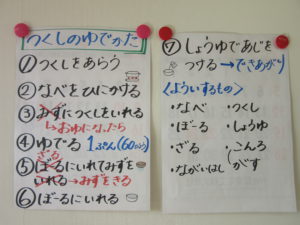 つくしのゆでかた
①つくしをあらう
②なべをひにかける
③みずにつくしをいれる
→おゆになったら
④ゆでる 1ぷん(60びょう)
⑤ぼーるにいれてみずを
いれる→みずをきる
⑥ぼーるにいれる
⑦しょうゆであじを
つける→できあがり
<よういするもの>
・なべ ・つくし
・ぼーる ・しょうゆ
・ざる ・こんろ
・ながいはし (がす)